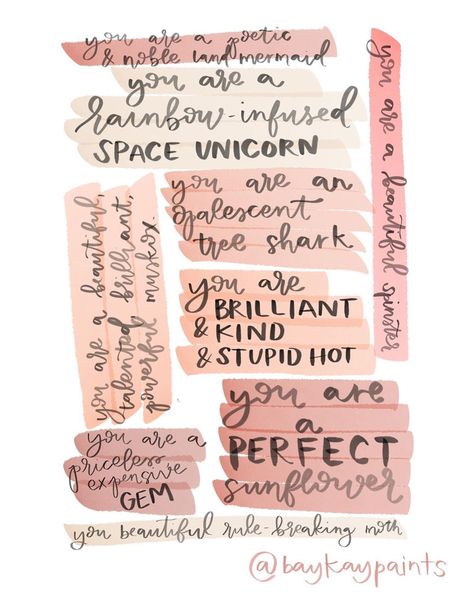 you are a poetic
& noble land mermaid
you are a
rainbow-infused
SPACE UNICORN
you are a beautiful spinster
you are an
opalescent
tree shark
you are a beautiful,
talented, brilliant,
powerful muskox
you are
BRILLIANT
& KIND
& STUPID HOT
you are
a
PERFECT
sunflower
you are a
priceless
expensive
GEM
you beautiful rule-breaking moth
@baykaypaints